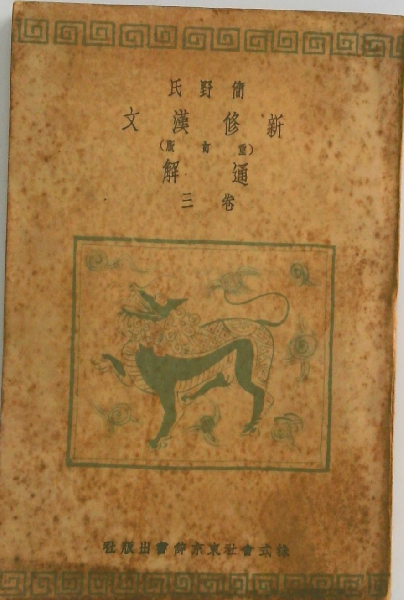 簡野氏
新修漢文
(重訂版)
通解
卷三
株式會社東京辭書出版社